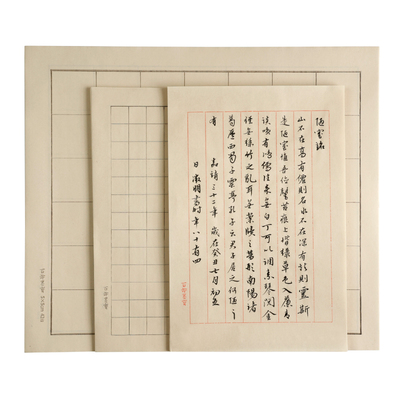 陋室銘
山不在高有僊則名水不在深有龍則靈斯
是陋室惟吾德馨苔痕上堦綠草色入簾青
談笑有鴻儒往來無白丁可以調素琴閱金
經無絲竹之亂耳無案牘之勞形南陽諸
葛廬西蜀子雲亭孔子云君子居之何陋之
有 嘉靖三十二年 歲在癸丑七月初五
日 徵明書時年八十有四